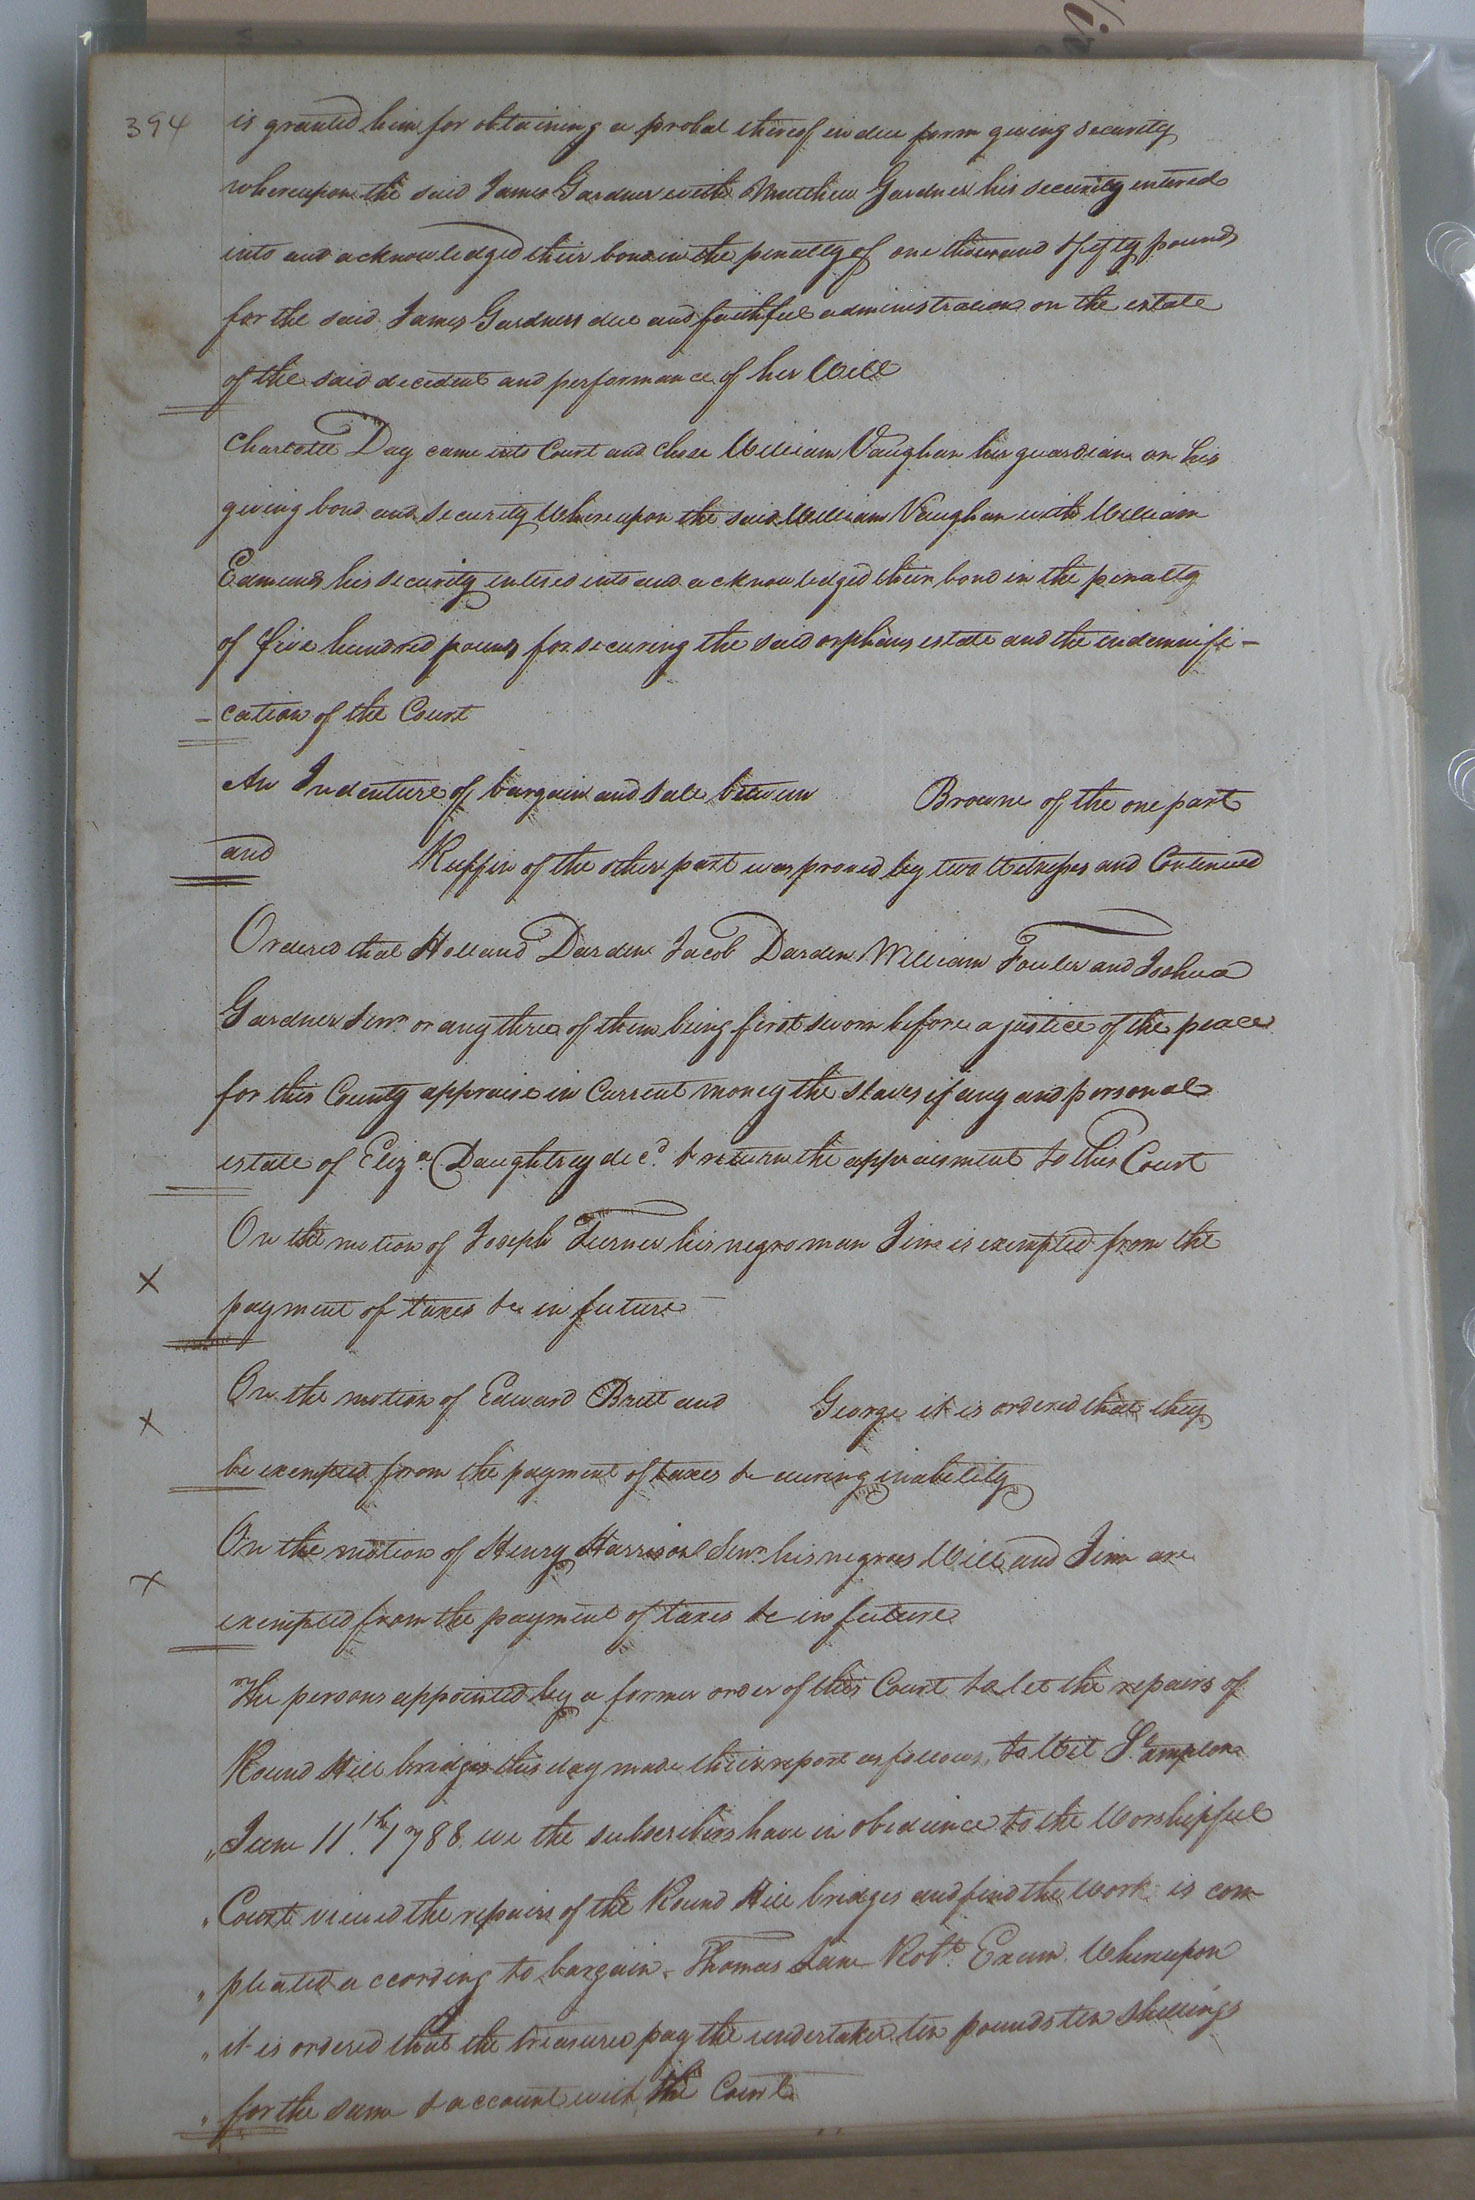 394
is granted him for obtaining a probat thereof in due form giving security
whereupon the said James Gardner with Matthew Gardner his security entered
into and acknowledged their bond in the penalty of one thousand & fifty pounds
for the said James Gardners due and faithful administration on the estate
of the said decedent and performance of her Will
Charlotte Day came into Court and chose William Vaughan her guardian on his
giving bond and security Whereupon the said William Vaughan with William
Edmunds his security entered into and acknowledged their bond in the penalty
of five hundred pounds for securing the said orphans estate and the indemnifi-
-cation of the Court
An Indenture of bargain and sale between Browne of the one part
and Ruffin of the other part was proved by two Witnesses and Continued
Ordered that Holland Darden Jacob Darden William Fowler and Joshua
Gardner Senr. or any three of them being first sworn before a justice of the peace
for this County appraise in Current money the slaves if any and personal
estate of Eliza. Daughtrey decd. & return the appraisment to this Court
On the motion of Joseph Turner his negro man Jim is exempted from the
X
payment of taxes &c in future -
On the motion of Edward Britt and George it is ordered that they
X
be exempted from the payment of taxes &c during inability
On the motion of Henry Harrison Senr. his negroes Will and Jim are
X
exempted from the payment of taxes &c in future
The persons appointed by a former order of this Court to let the repairs of
Round Hill bridges this day made their report as follows, to Wit S.ampton
" June 11th. 1788 we the subscribers have in obedience to the Worshipful
" Court viewed the repairs of the Round Hill bridges and find the work is com
" pleated according to bargain. Thomas Lane Robt. Exum. Whereupon
" it is ordered that the treasurer pay the undertaker ten pounds ten shillings
" for the same & account with the Court.